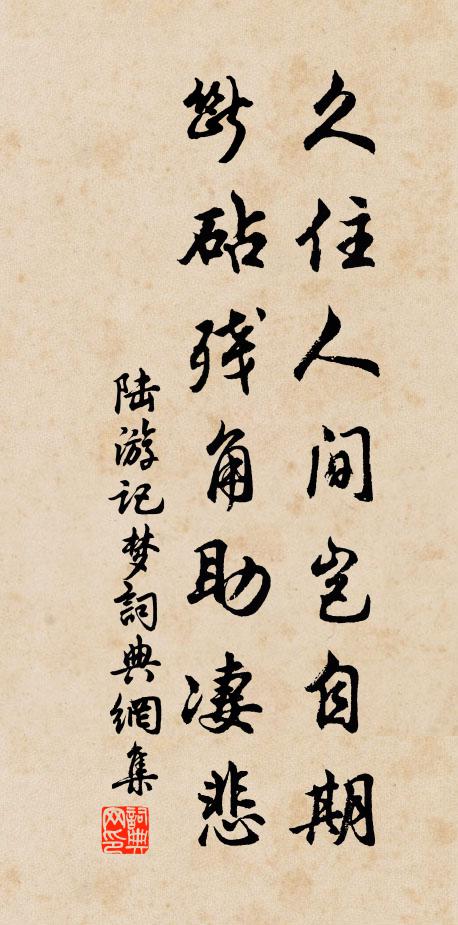 久住人间岂自期
断砧残角助凄悲
陆游记梦词典网集
词典网印